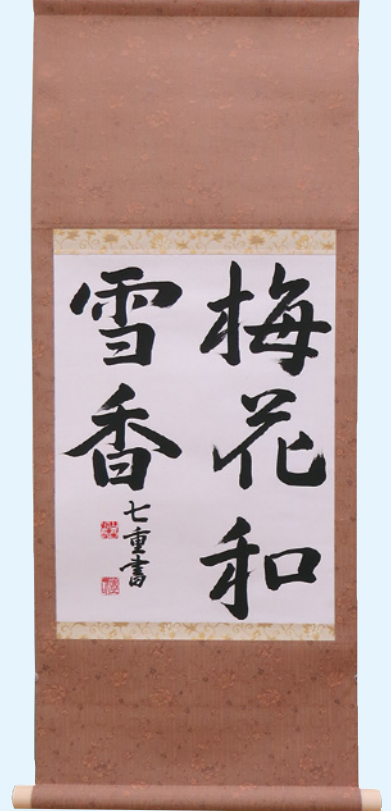 梅花和
雪香
七重書